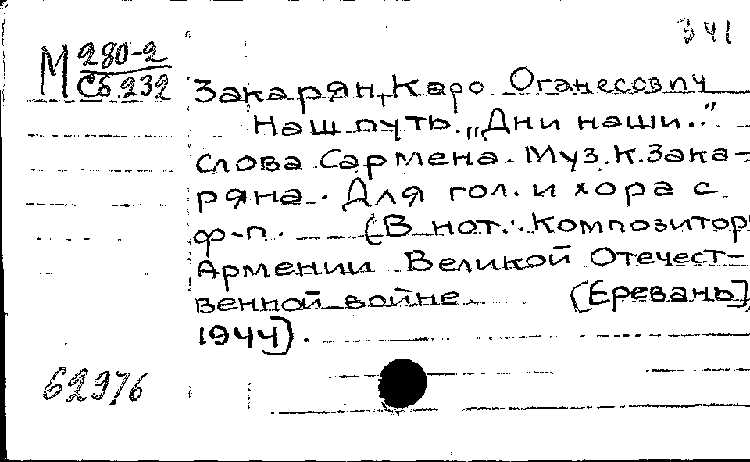 341
М 280-2
Сб. 232
Закарян, Каро Оганесович
Наш путь. „Дни наши.."
слова Сармена. Муз. К. Зака-
ряна. Для гол. и хора с
ф-п. (В нот.: Композитор
Армении Великой Отечест-
венной войне. [Еревань],
1944).
62976